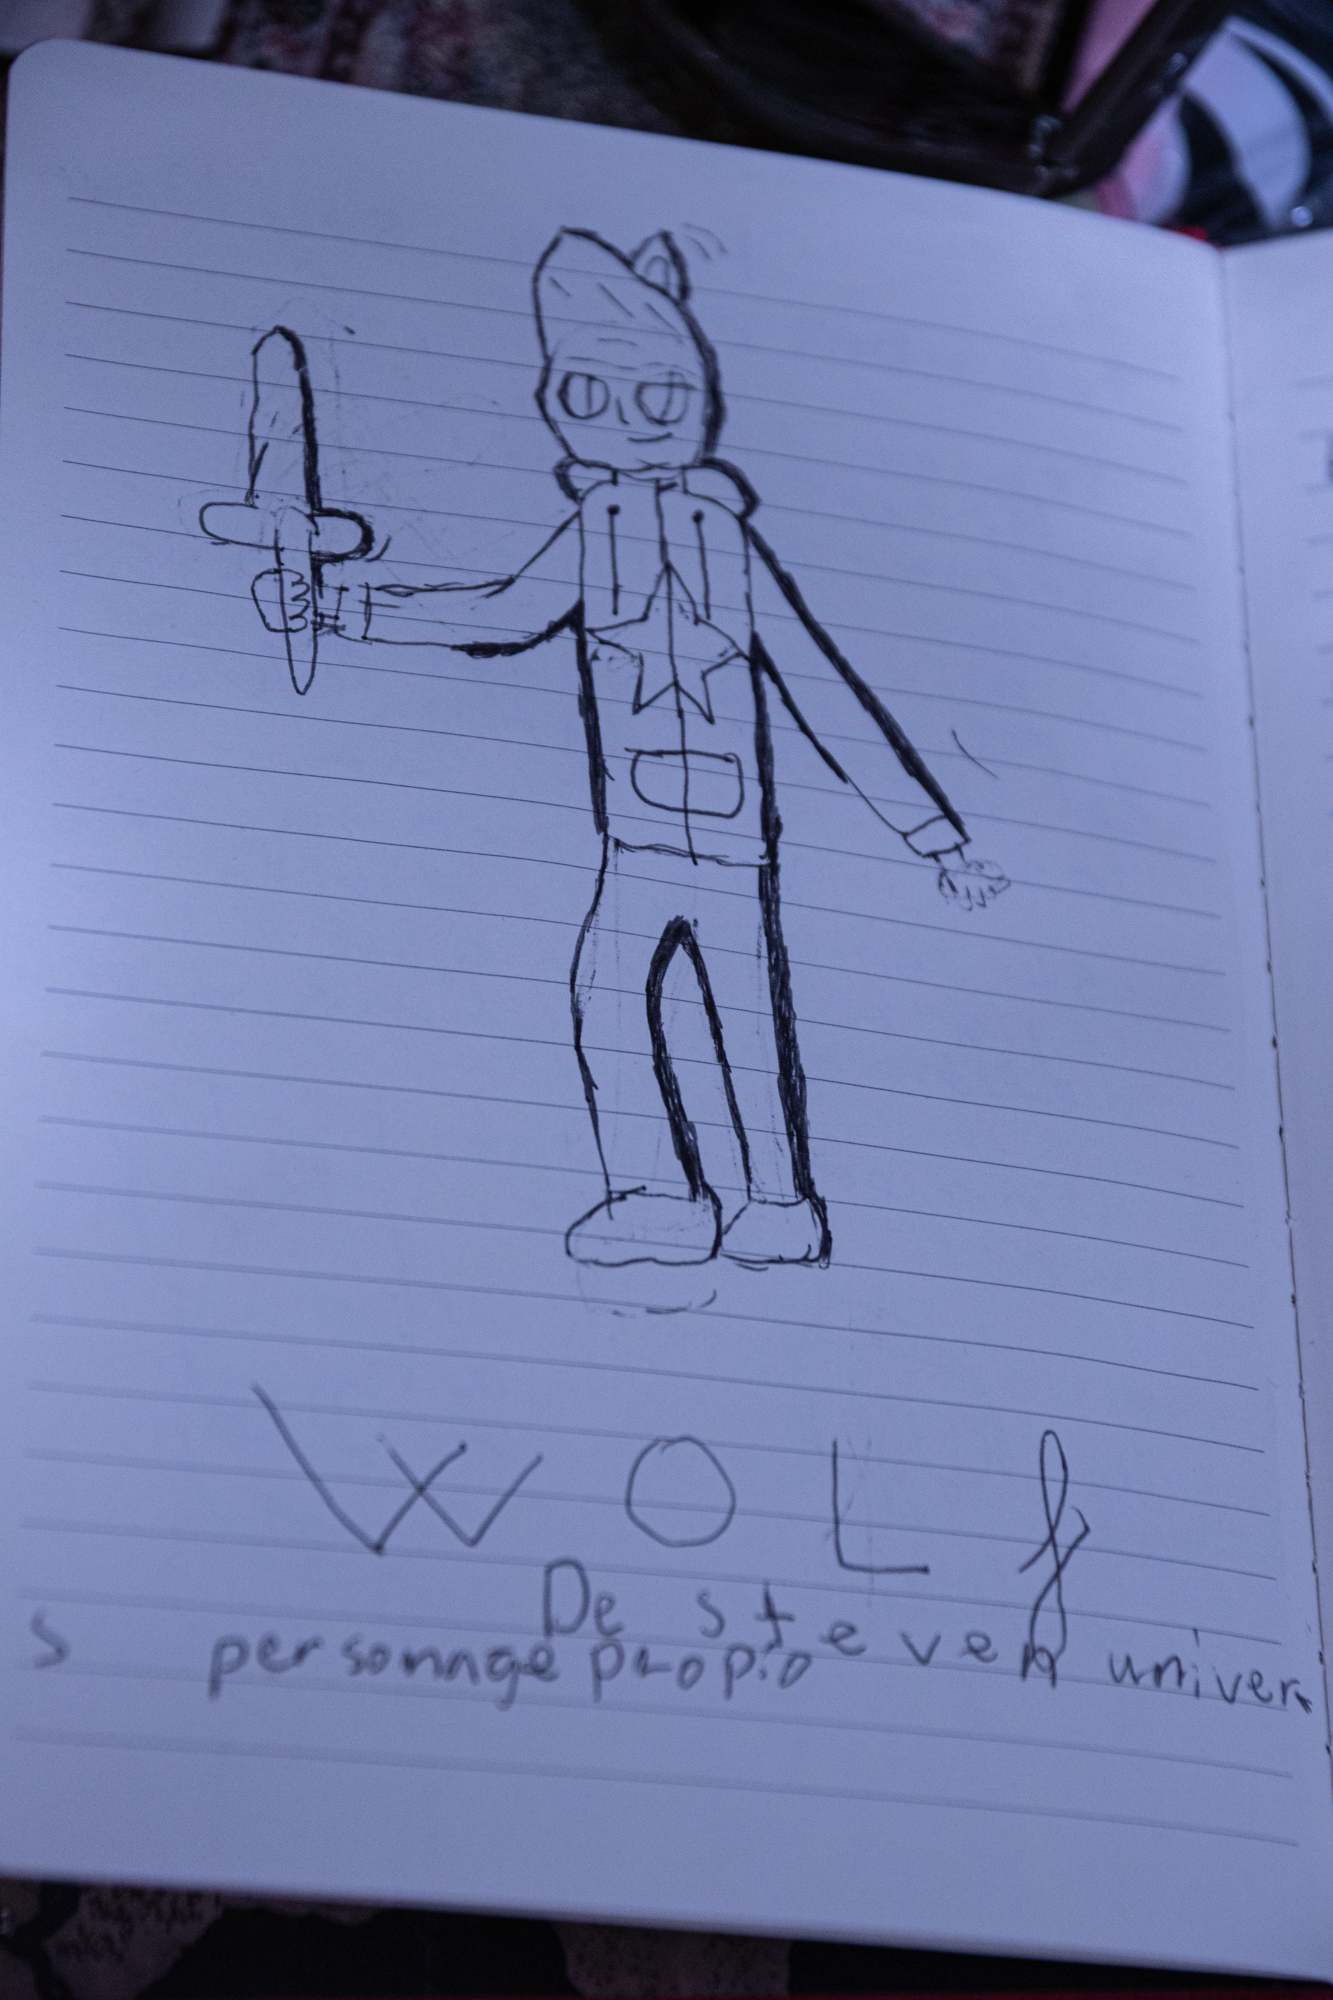 WOLf
De steven univer
s personnge propio